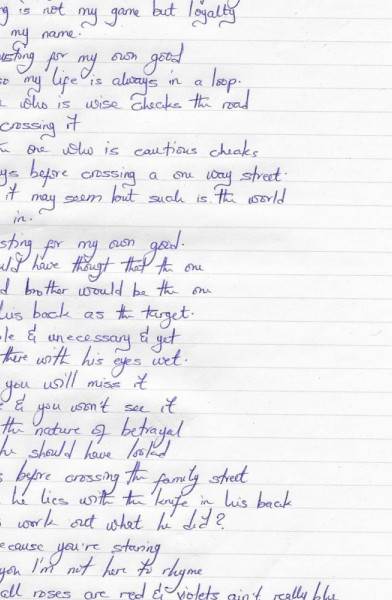 g is not my game but loyalty
my name.
usting for my own good
so my life is always in a loop.
who is wise checks the road
crossing it
one who is cautious cheaks
ys before crossing a one way street.
it may seem but such is the world
in.
sting for my own good.
uld have thougt that the one
d brother would be the one
his back as the target.
le & unecessary & yet
there with his eyes wet.
you will miss it
& you won't see it
the nature of betrayal
he should have looked
s before crossing the family street
he lies with the knife in his back
work out what he did?
ecause you're staring
you I'm not here to rhyme
all roses are red & violets ain't really blu